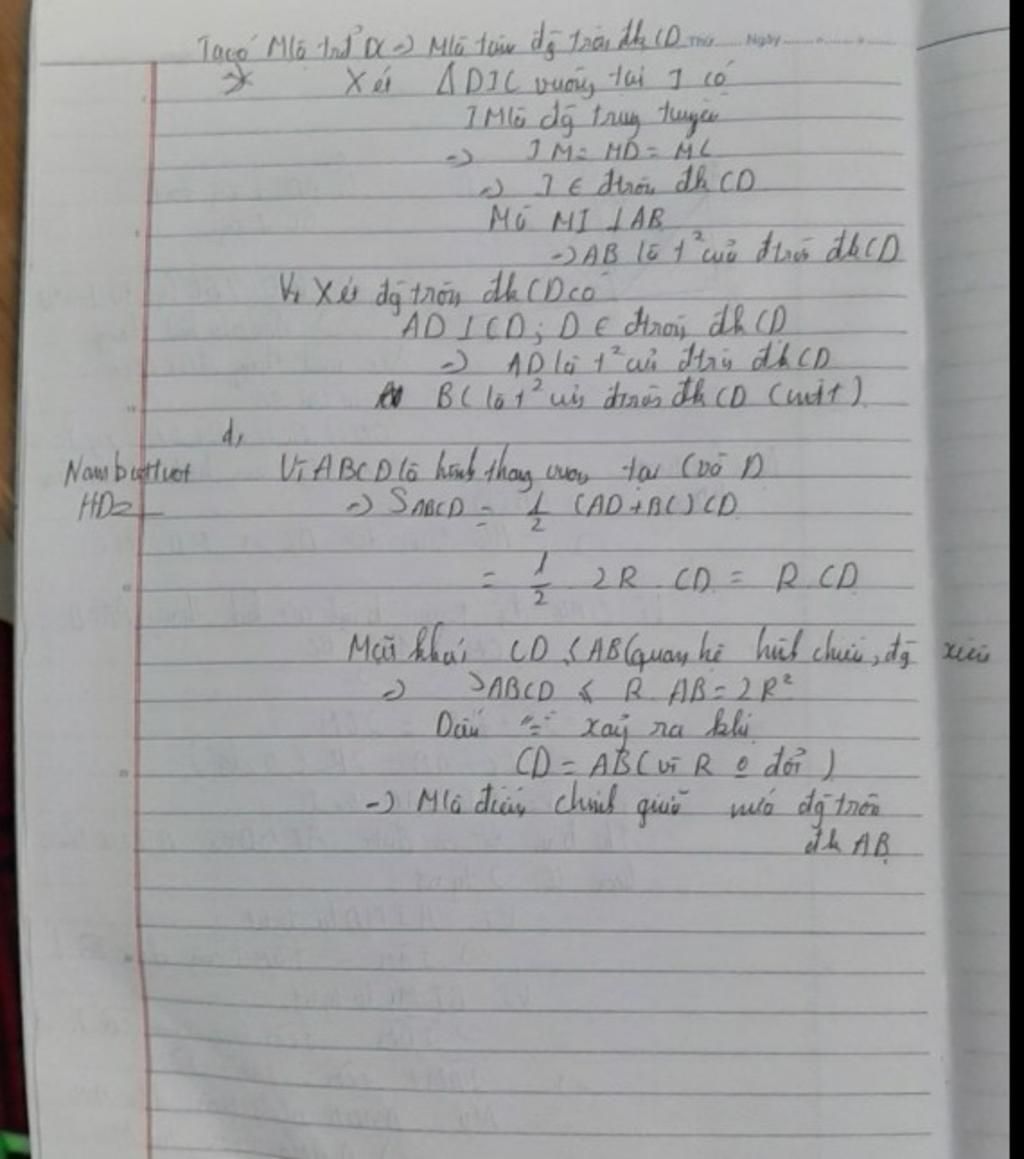 Ta có M là trđ DC => M là tâm đg tròn đk CD Thứ Ngày
=> Xét ΔDIC vuông tại I có
IM là đg trung tuyến
=> IM = MD = MC
=> I ∈ đtròn đk CD
Mà MI ⊥ AB
=> AB là t² của đtròn đk CD
V, Xét đg tròn đk CD có
AD ⊥ CD; D ∈ đtròn đk CD
=> AD là t² của đtròn đk CD
BC là t² của đtròn đk CD (cmtt)
d,
Vì ABCD là hình thang vuông tại C và D
=> SABCD = 1/2 (AD+BC) CD
= 1/2 2R . CD = R . CD
Mặt khác CD ≤ AB (quan hệ hình chiếu, đg xiên
=> SABCD ≤ R . AB = 2R²
Dấu "=" xảy ra khi
CD = AB (vì R o đổi)
=> M là điểm chính giữa nửa đg tròn
đk AB